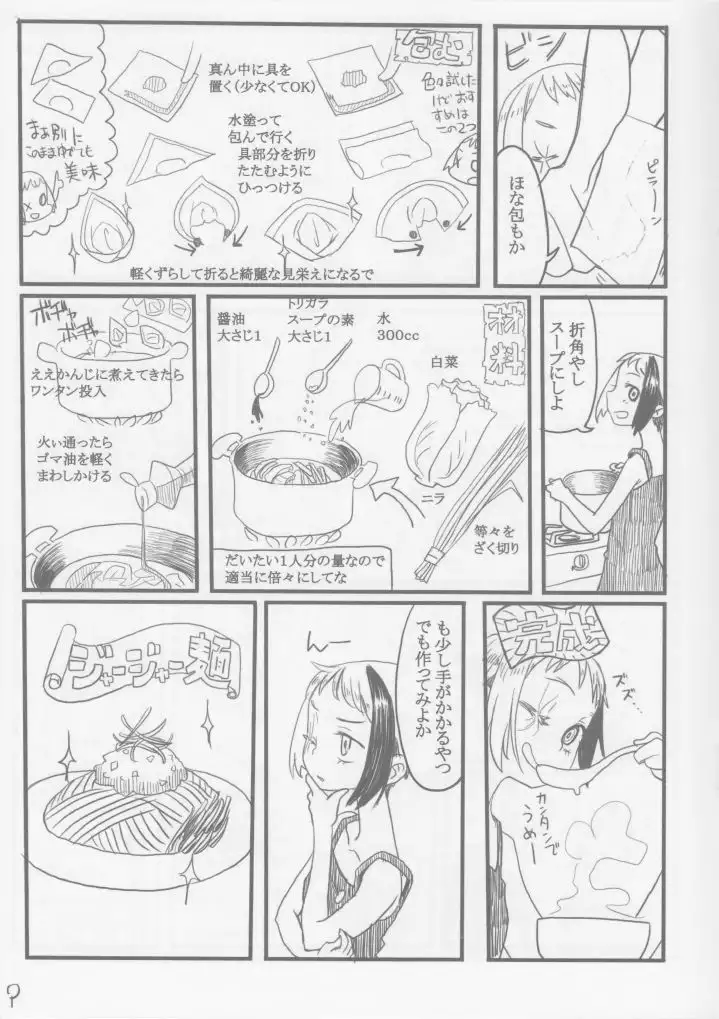 ビシ
ピラーン
ほな包もか
包む
色々試した
けどおす
すめは
この2つ
真ん中に具を
置く(少なくてOK)
水塗って
包んで行く
具部分を折り
たたむように
ひっつける
まぁ別に
このままゆでても
美味
軽くずらして折ると綺麗な見栄えになるで
折角やし
スープにしよ
材料
水
300cc
トリガラ
スープの素
大さじ1
醤油
大さじ1
白菜
ニラ
等々を
ざく切り
だいたい1人分の量なので
適当に倍々にしてな
ボチャ
ボチャ
ええかんじに煮えてきたら
ワンタン投入
火ぃ通ったら
ゴマ油を軽く
まわしかける
完成
ズズ…
カンタンで
うめー
も少し手がかかるやつ
でも作ってみよか
んー
ジャージャー麺